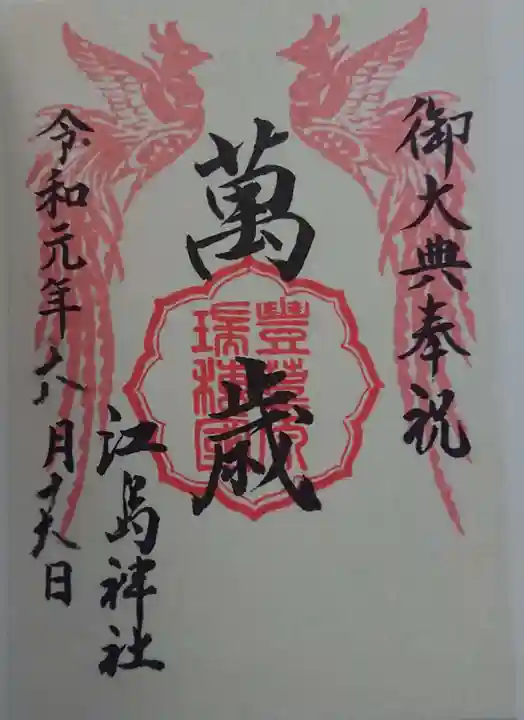 御大典奉祝
萬歳
豐葦原
瑞穂國
江島神社
令和元年八月十八日